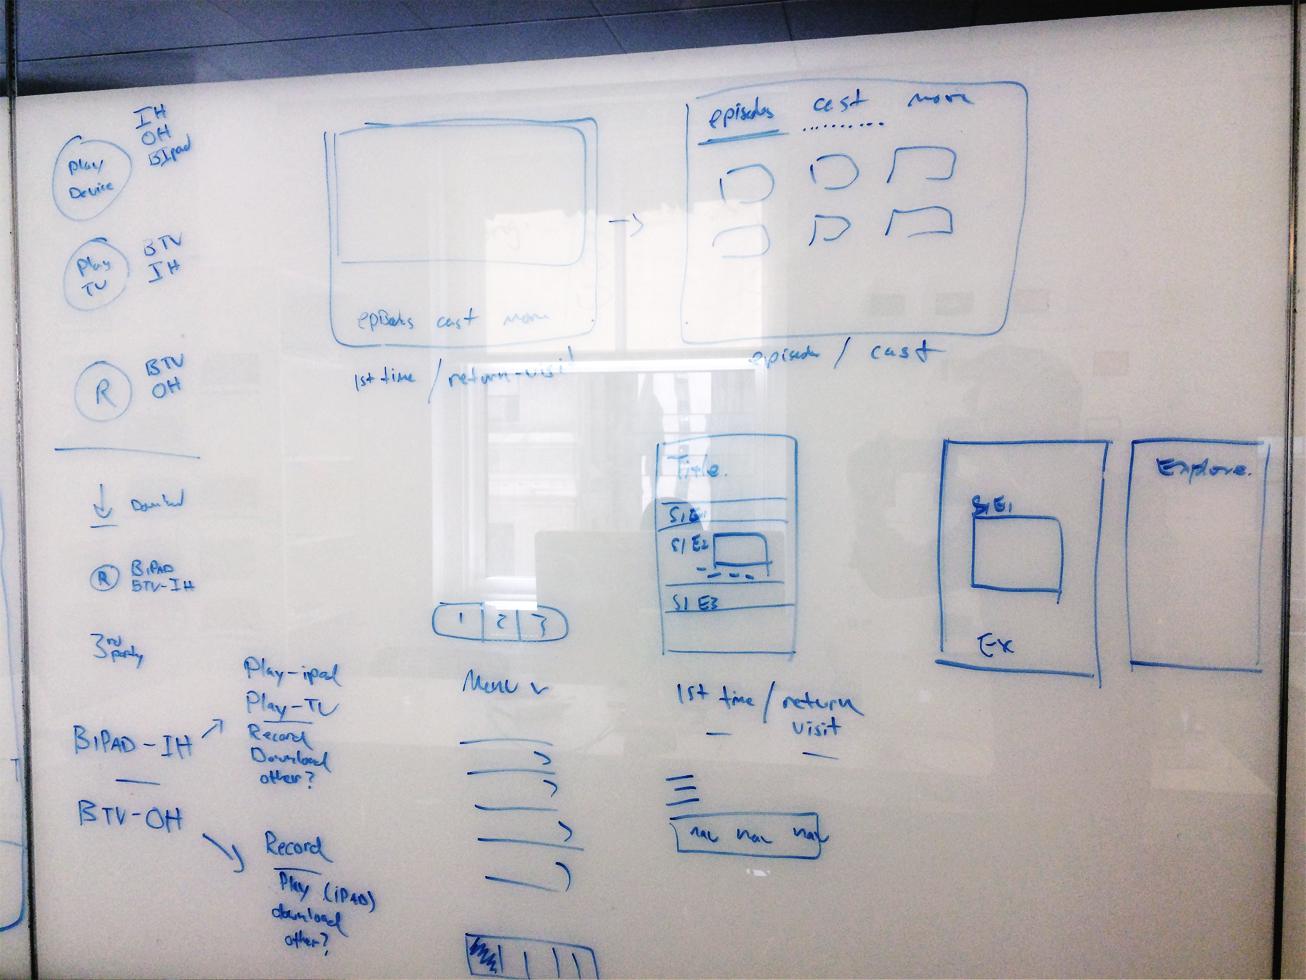 IH
OH
BIpad
Play
Device
BTV
IH
Play
TV
BTV
OH
R
Download
R
BIPAD
BTV-IH
3rd
party
BIPAD-IH
BTV-OH
Play-ipad
Play-TV
Record
Download
other?
Record
Play (iPAD)
download
other?
episodes cast more
1st time / return-visit
episodes cast more
episodes / cast
1 2 3
Menu v
Title.
S1E1
S1E2
S1E3
1st time / return
visit
nav nav nav
S1E1
Ex
Explore.